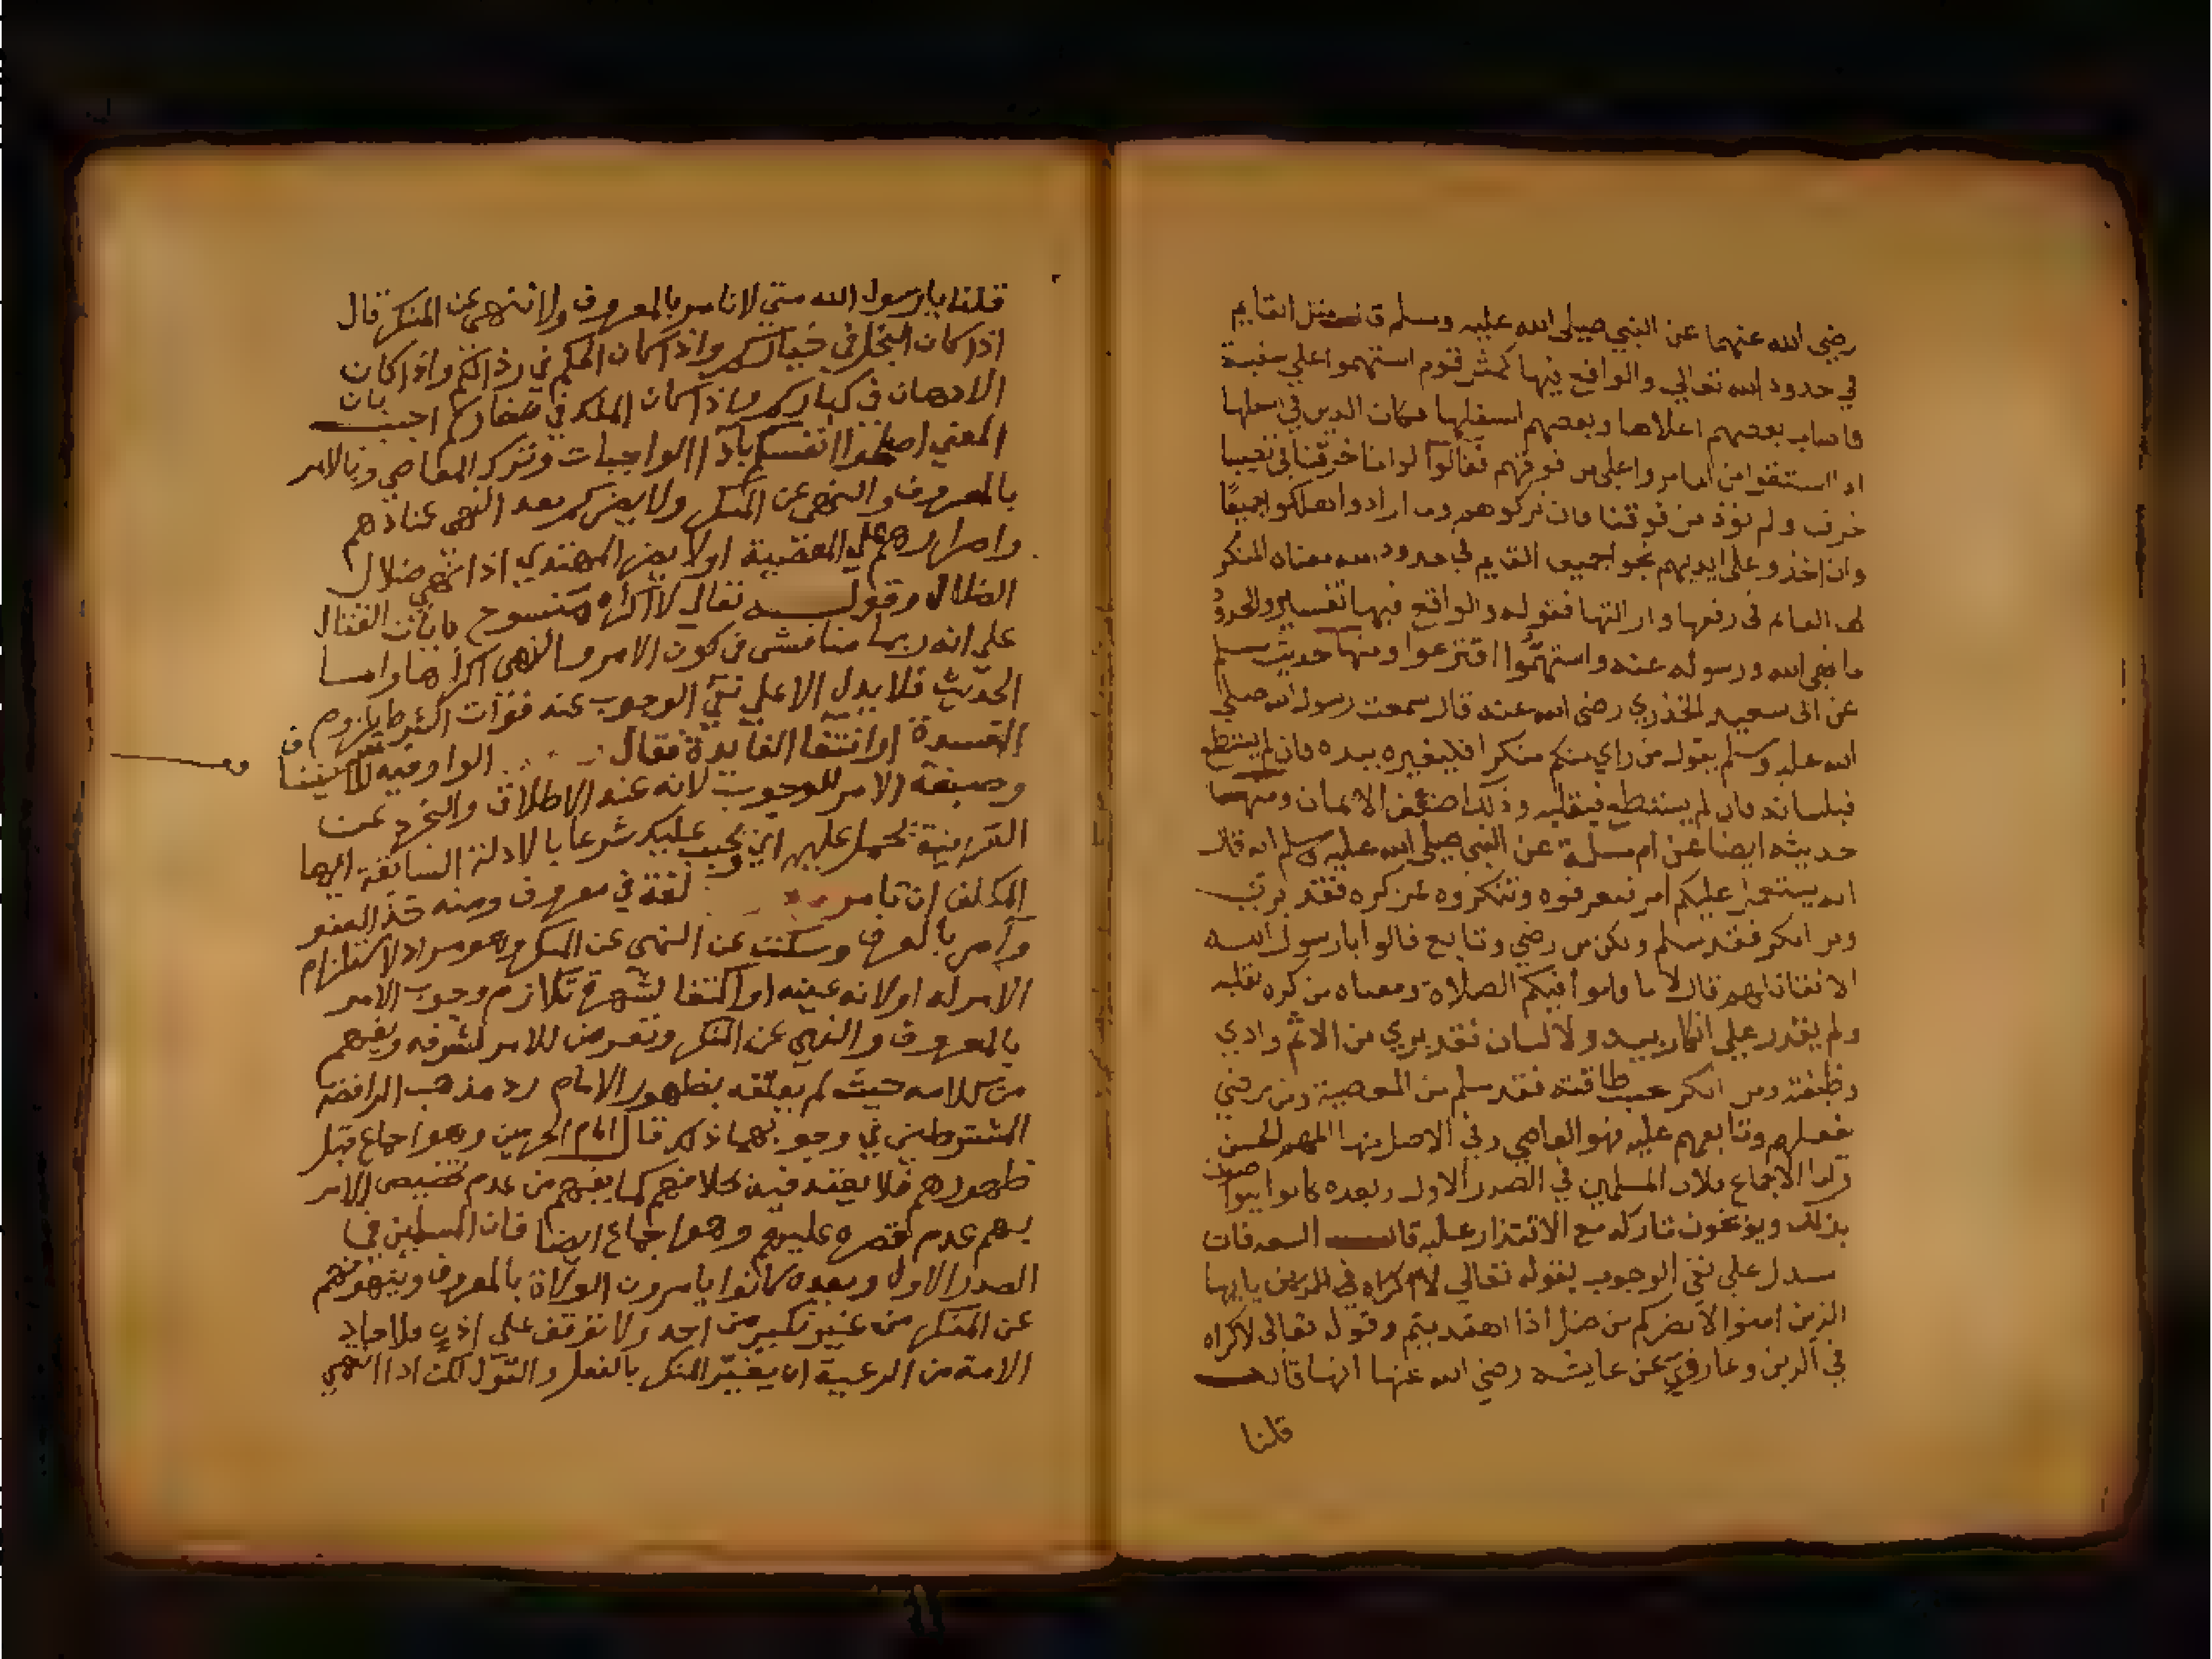 رضي الله عنهما عن النبي صلى الله عليه وسلم قال مثل القايم
في حدود الله تعالي والواقع فيها كمثل قوم استهموا علي سفينة
فاصاب بعضهم اعلاها وبعضهم اسفلها فكان الذين في اسفلها
اذا استقوا من الما مروا علي من فوقهم فقالوا لو انا خرقنا في نصيبنا
خرقا ولم نوذ من فوقنا فان تركوهم وما ارادوا هلكوا جميعا
وان اخذوا علي ايديهم نجوا جميعا القايم في حدود الله معناه المنكر
لها القايم في دفعها وازالتها فقوله والواقع فيها تفسير والحدود
ما نهي الله ورسوله عنه واستهموا اقترعوا ومنها حديث مسلم
عن ابي سعيد الخدري رضي الله عنه قال سمعت رسول الله صلي
الله عليه وسلم يقول من راي منكم منكرا فليغيره بيده فان لم يستطع
فبلسانه فان لم يستطع فبقلبه وذلك اضعف الايمان ومنها
حديثه ايضا عن ام سلمة عن النبي صلي الله عليه وسلم انه قال
انه يستعمل عليكم امرا فتعرفوه وتنكروه فمن كره فقد بري
ومن انكر فقد سلم ولكن من رضي وتابع قالوا يا رسول الله
الا نقاتلهم قال لا ما اقاموا فيكم الصلاة ومعناه من كره بقلبه
ولم يقدر علي انكار بيد ولا لسان فقد بري من الاثم وادي
وظيفته ومن انكر حسب طاقته فقد سلم من المعصية ومن رضي
بفعلهم وتابعهم عليه فهو العاصي وفي الاصل
واما الاجماع فلان المسلمين في الصدر الاول وبعده كانوا يتواصون
بذلك ويوبخون تاركه مع الاقتدار عليه قال السعد فان
استدل علي نفي الوجوب بقوله تعالي لا اكراه في الدين يا ايها
الذين امنوا لا يضركم من ضل اذا اهتديتم وقوله تعالي لا اكراه
في الدين وبما روي عن عايشه رضي الله عنها انها قالت
قلنا
قلنا يا رسول الله متي لا نامر بالمعروف ولا ننهي عن المنكر قال
اذا كان البخل في خياركم واذا كان الحكم في رذالكم واذا كان
الادهان في كباركم واذا كان الملك في صغاركم اجيب بان
المعني اصلحوا انفسكم باداء الواجبات وترك المعاصي وبالامر
بالمعروف والنهي عن المنكر ولا يضركم بعد النهي عنادهم
واصرارهم علي المعصية او لا يضر المهتدي اذا نهي ضلال
الضلال وقوله تعالي لا اكراه منسوخ بايات القتال
علي انه ربما مناقش في كون الامر والنهي اكراها واما
الحديث فلا يدل الا علي نفي الوجوب عند فوات الشرط بلزوم
المفسدة او انتفا الفايدة فقال الواو فيه للاستيناف
وصيغة الامر للوجوب لانه عند الاطلاق والتجرد عن
القرينة تحمل عليه اي يجب عليك شرعا بالادلة السابقة ايها
المكلف ان تامر لغة في معروف ومنه خذ العفو
وامر بالعرف وسكت عن النهي عن المنكر وهو مراد لاستلزام
الامر له او لانه عينه او اكتفا لشهرة تلازم وجوب الامر
بالمعروف والنهي عن المنكر وتعرض للامر لشرفه ويفهم
من كلامه حيث لم يعلقه بظهور الامام رد مذهب الرافضة
المشترطين في وجوبهما ذلك قال امام الحرمين وهو اجماع قبل
ظهورهم فلا يعتد فيه بخلافهم كما يفهم من عدم تخصيص الامر
بهم عدم قصره عليهم وهو اجماع ايضا فان المسلمين في
الصدر الاول وبعده كانوا يامرون الولاة بالمعروف وينهونهم
عن المنكر من غير نكير من احد ولا توقف علي اذن فلاحاد
الامة من الرعية ان يغير المنكر بالفعل والقول لكن اذا انتهي